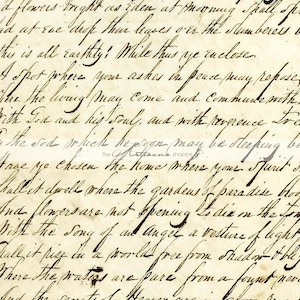 flowers bright as Eden at morning shall
at eve drop their leaves o'er the slumberers
this is all Earthly! While thus ye enclose
A spot where your ashes in peace may repose
Where the living may come and commune with
With God and his Soul, and with reverence
the sod which he soon may be sleeping
have ye chosen the home where your Spirit
Shall it dwell where the gardens of paradise
And flowers are not opening to die on the
With the Song of an angel a vesture of light
Shall it live in a world free from shadow
Where the waters are pure from a fount